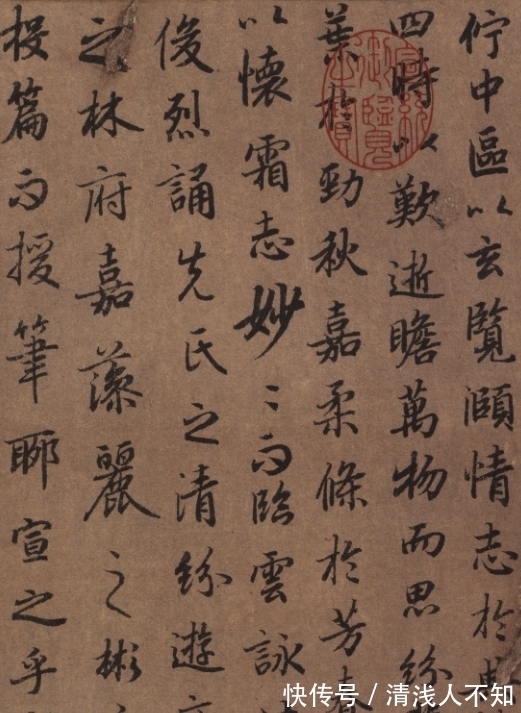 佇中區以玄覽頤情志於
四時以歎逝瞻萬物而思紛
葉於勁秋嘉柔條於芳春
以懷霜志妙〻而臨雲詠
俊烈誦先氏之清紛遊
之林府嘉藻麗之彬
投篇而援筆聊宣之乎
快传号 / 清浅人不知